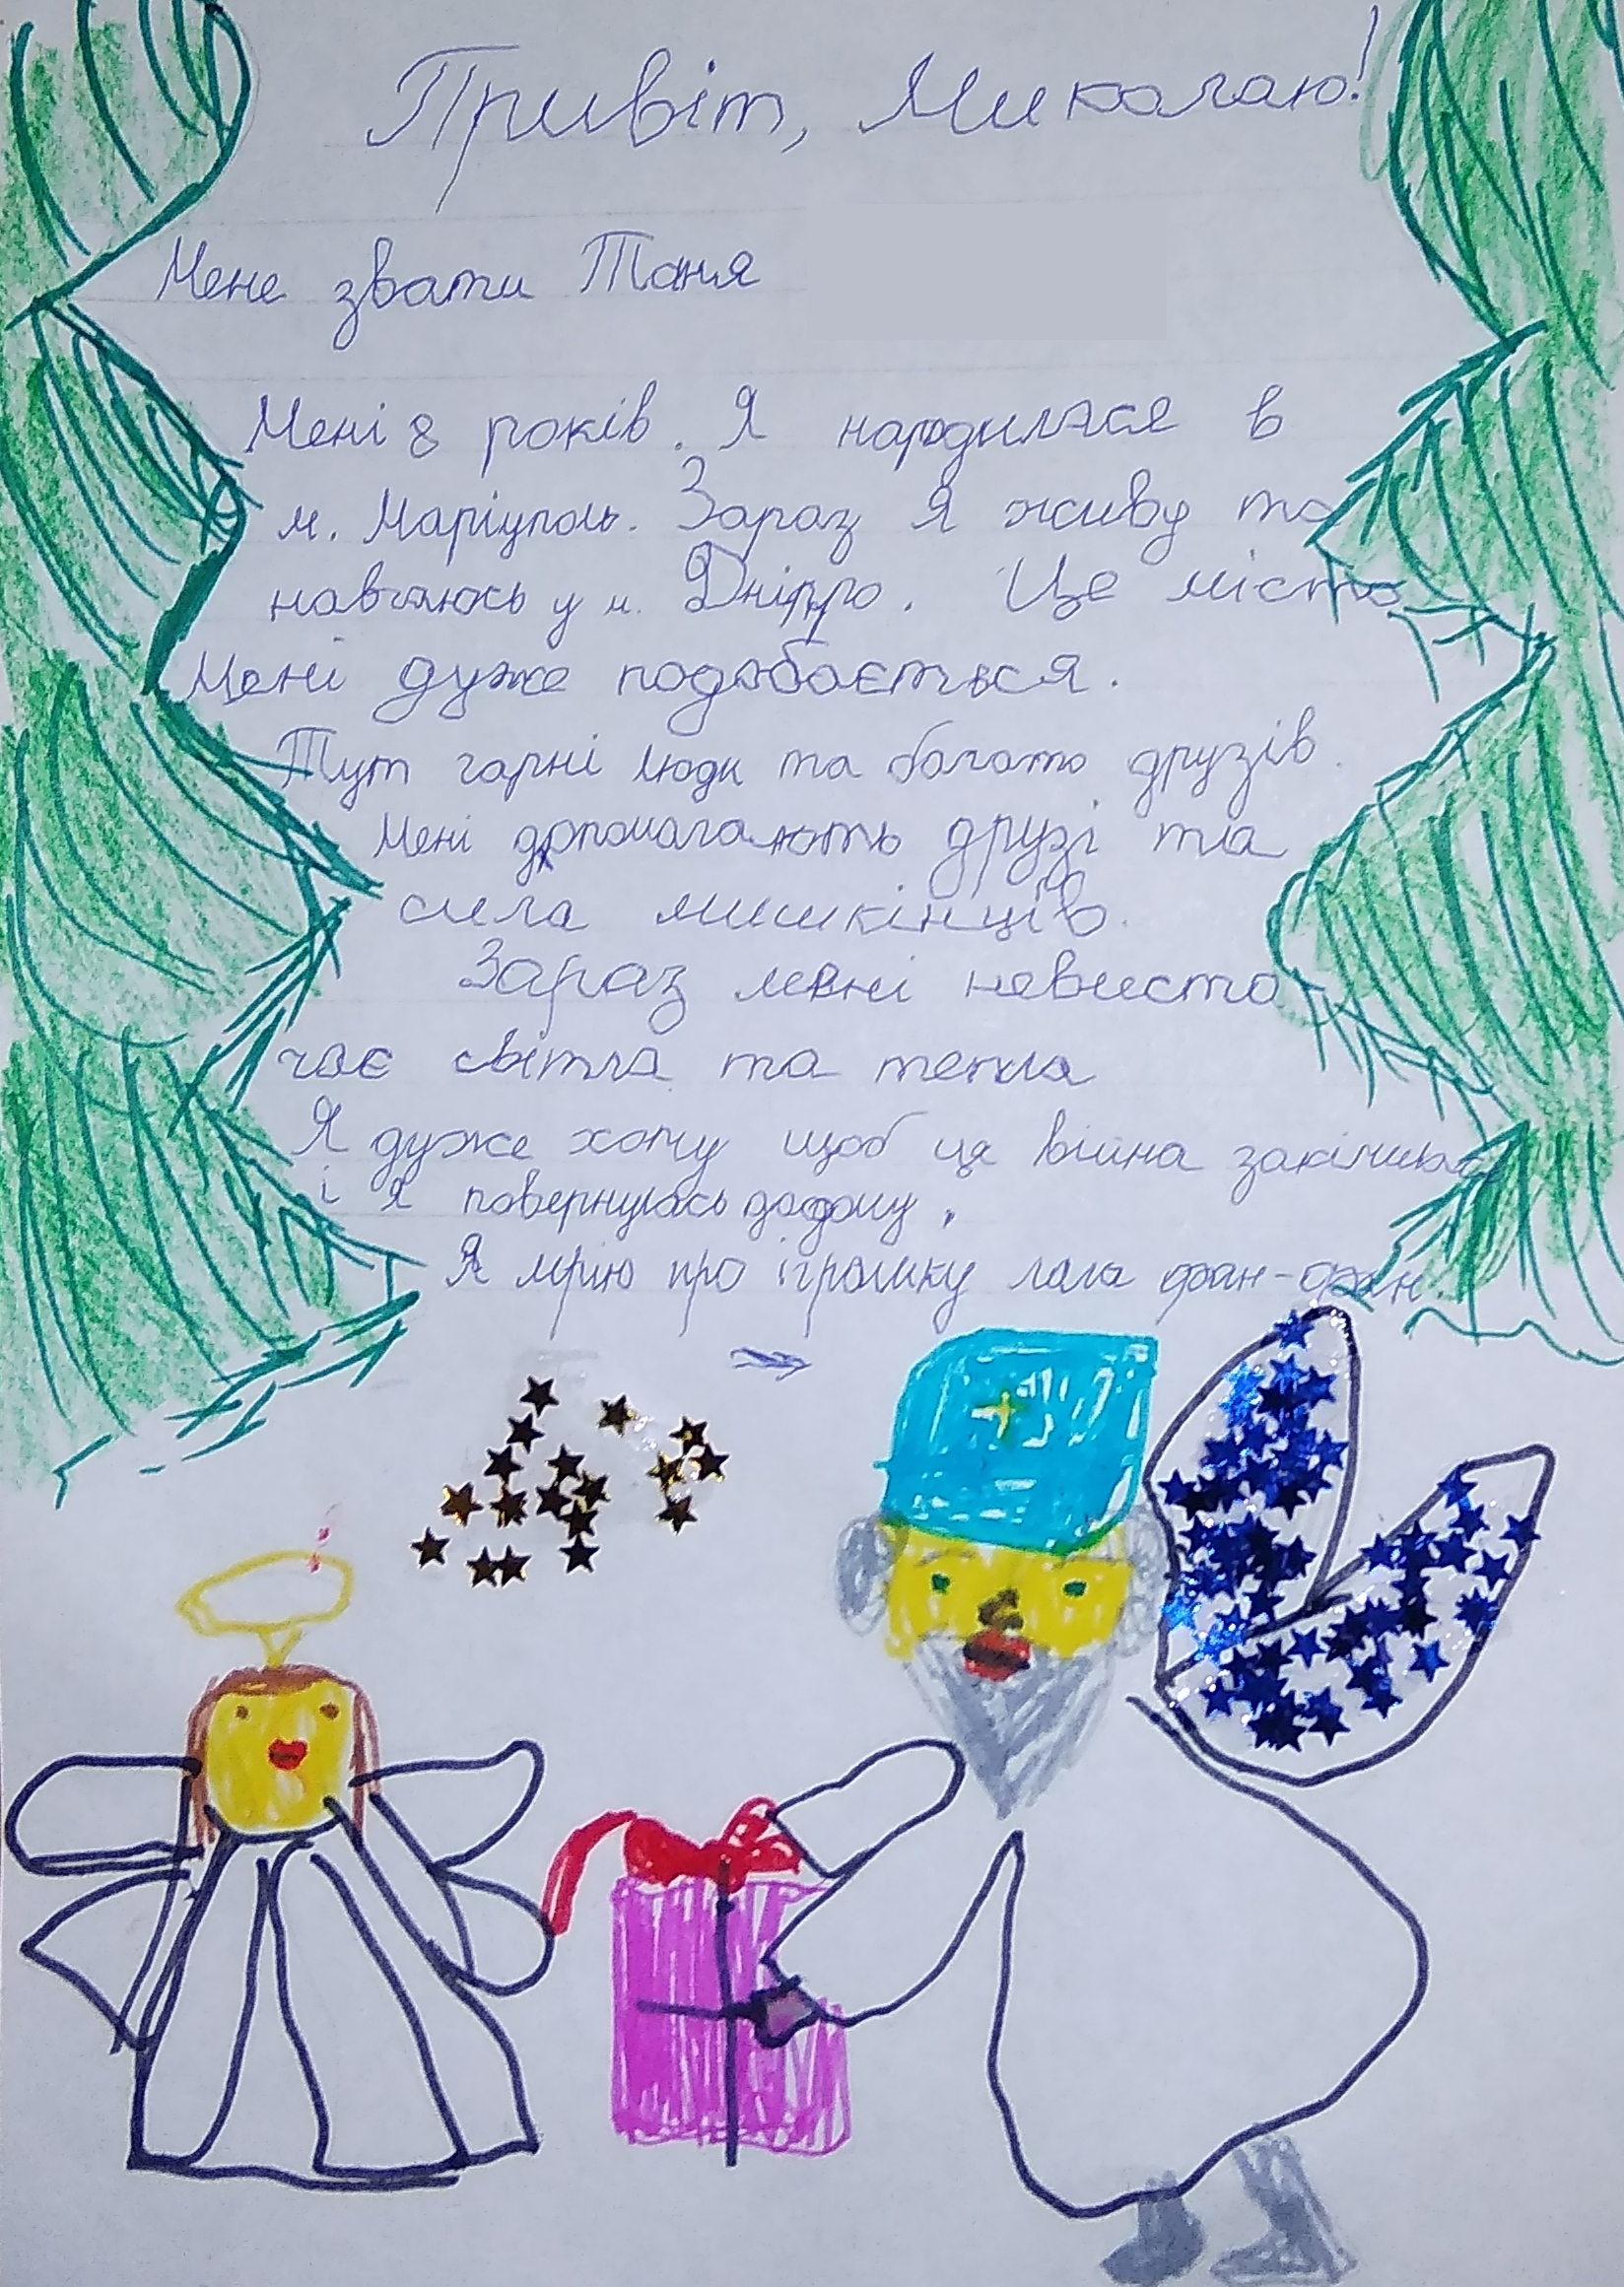 Привіт, Миколаю!
Мене звати Таня
Мені 8 років. Я народилася в
м. Маріуполь. Зараз я живу та
навчаюсь у м. Дніпро. Це місто
Мені дуже подобається.
Тут гарні люди та багато друзів.
Мені допомагають друзі та
сила мишкінців.
Зараз мені невиста
чає світла та тепла
Я дуже хочу щоб ця війна
і я повернулась додому.
Я мрію про іграшку лала фан-фан.